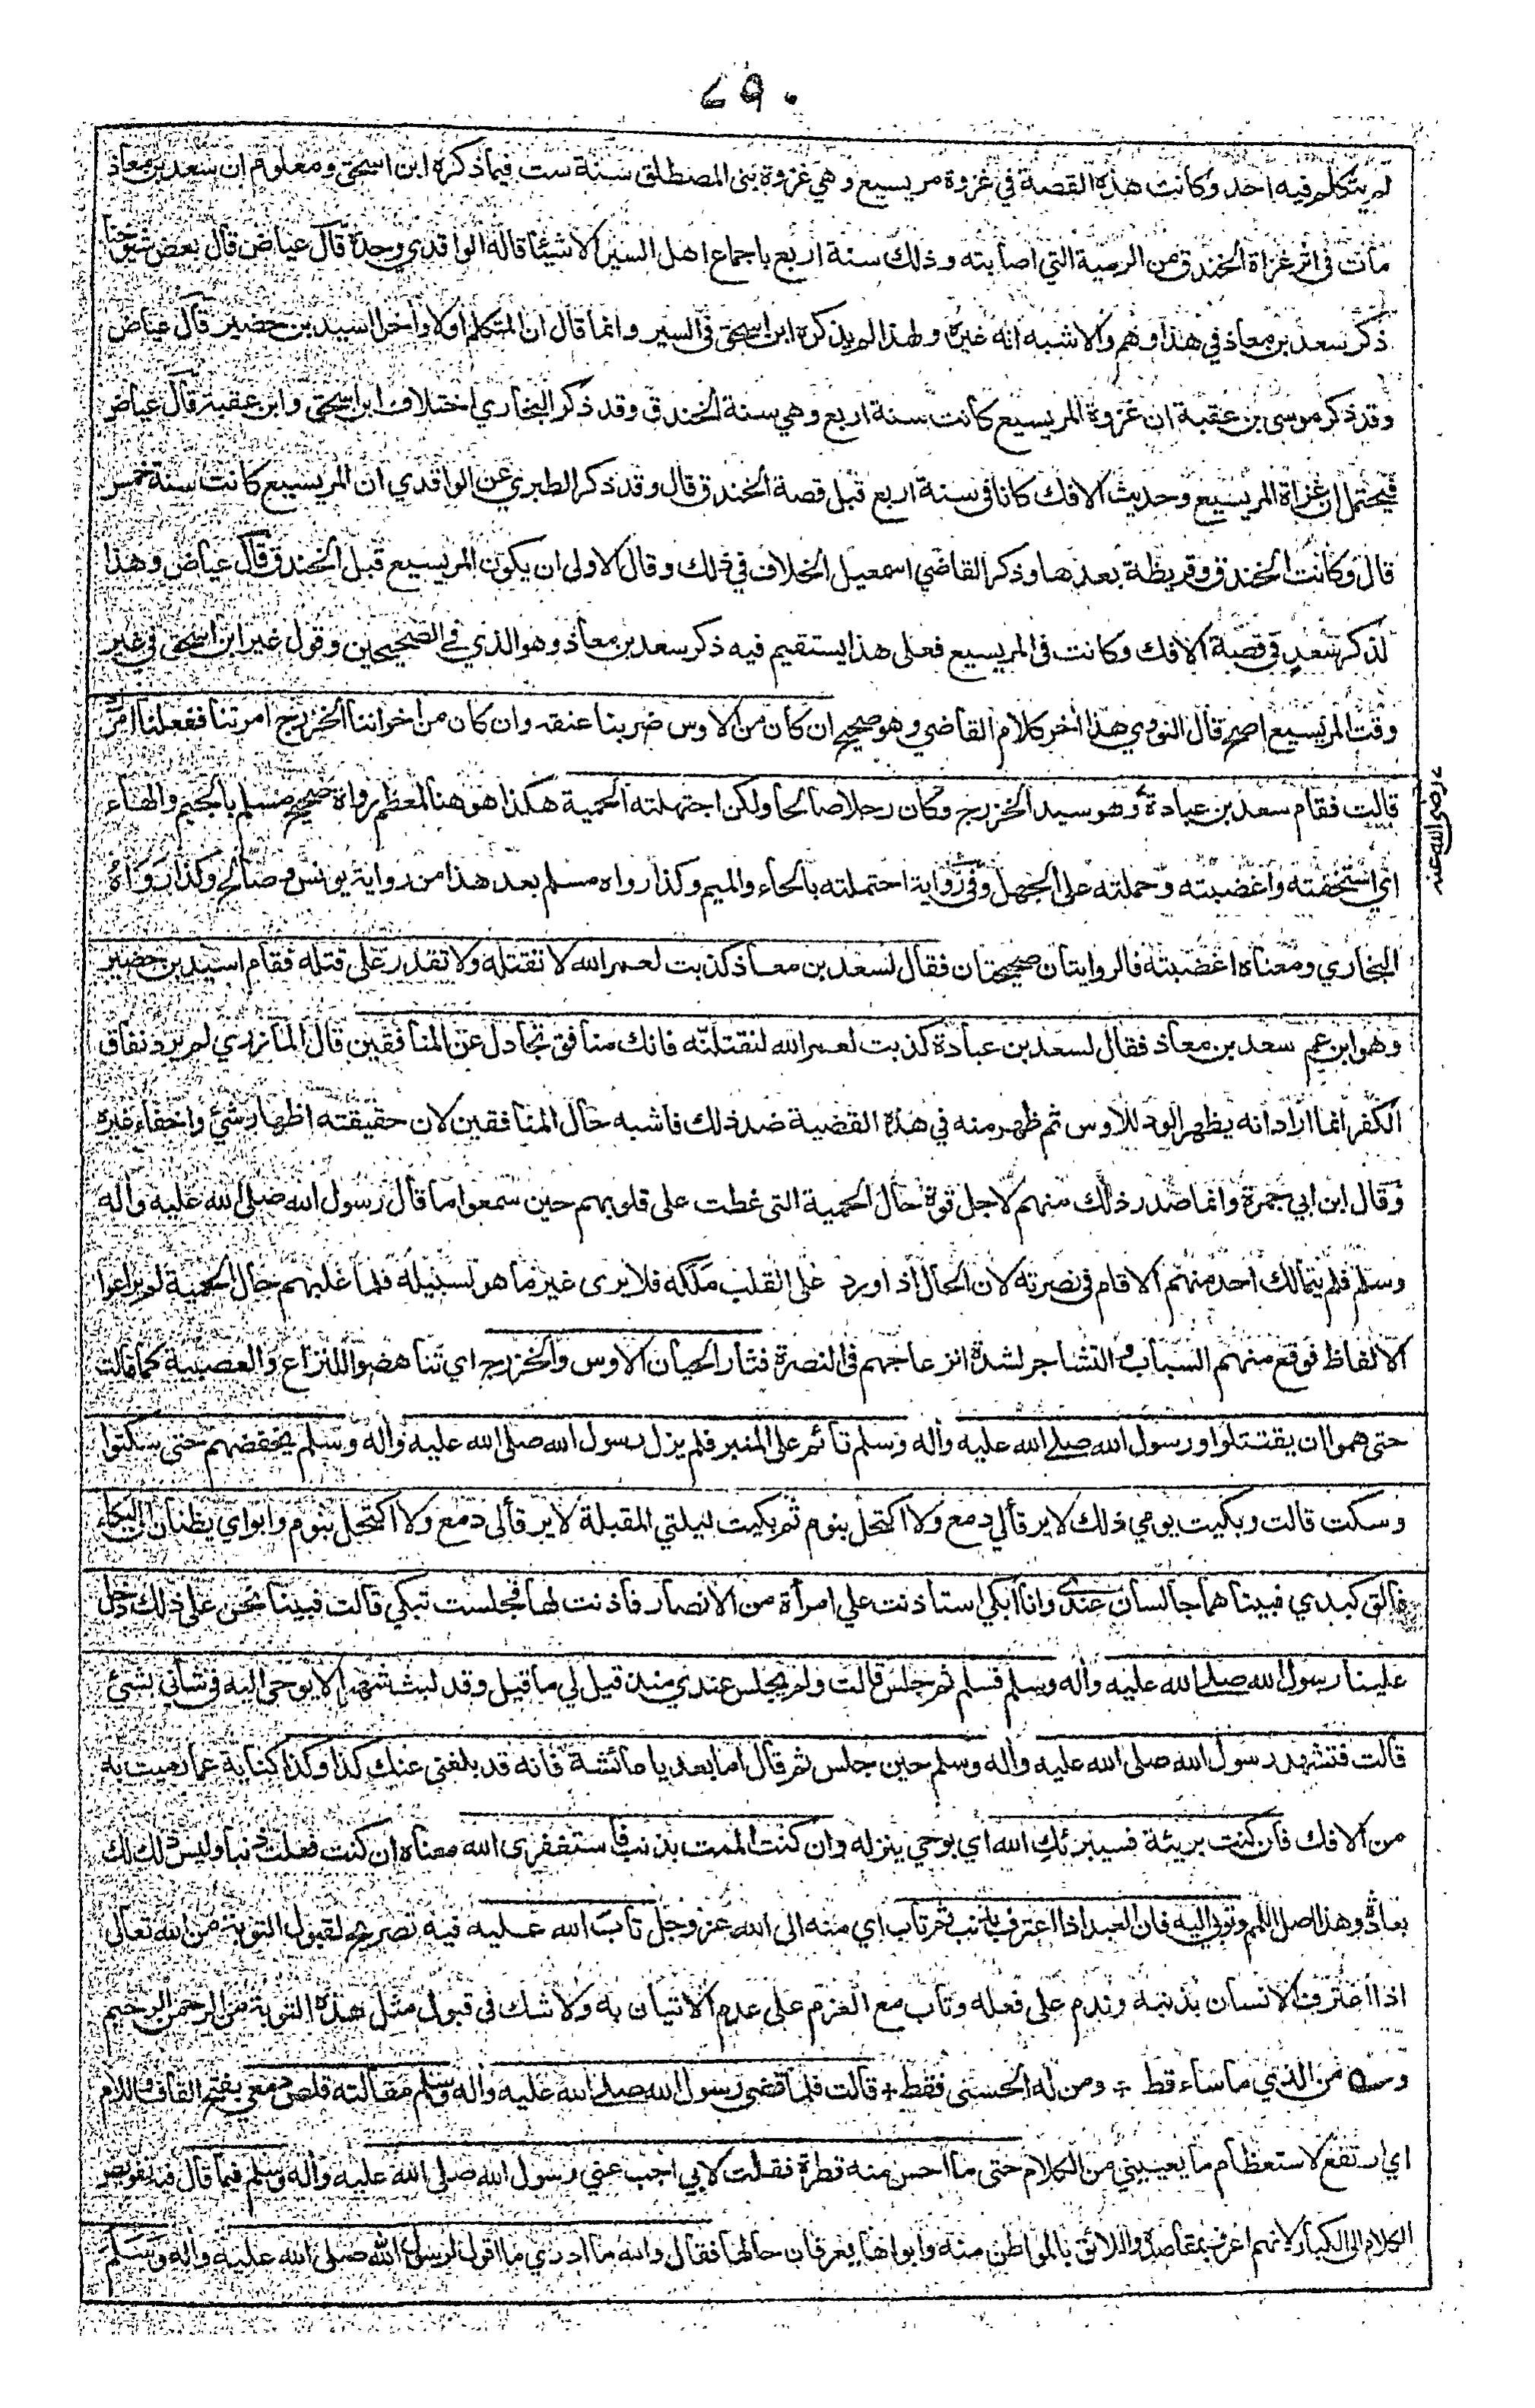 ٦٩٠
لم يتكلم فيه احد وكانت هذه القصة في غزوة مريسيع وهي غزوة بنى المصطلق سنة ست فيما ذكره ابن اسحق ومعلوم ان سعد بن معاذ
مات في اثر غزاة الخندق من الرمية التي اصابته وذلك سنة اربع باجماع اهل السير الا شيئا قاله الواقدي وحده قال عياض قال بعض شيوخنا
ذكر سعد بن معاذ في هذا وهم والاشبه انه غيره ولهذا لم يذكره ابن اسحق في السير وانما قال ان المتكلم اولا وآخرا اسيد بن حضير قال عياض
وقد ذكر موسى بن عقبة ان غزوة المريسيع كانت سنة اربع وهي سنة الخندق وقد ذكر البخاري اختلاف ابن اسحق وابن عقبة قال عياض
فيحتمل ان غزاة المريسيع وحديث الافك كانا في سنة اربع قبل قصة الخندق قال وقد ذكر الطبري عن الواقدي ان المريسيع كانت سنة خمس
قال وكانت الخندق وقريظة بعدها وذكر القاضي اسمعيل الخلاف في ذلك وقال الاولى ان يكون المريسيع قبل الخندق قال عياض وهذا
لذكر سعد في قصة الافك وكانت في المريسيع فعلى هذا يستقيم فيه ذكر سعد بن معاذ وهو الذي في الصحيحين وقول غير ابن اسحق في غير
وقت المريسيع اصح قال النووي هذا آخر كلام القاضي وهو صحيح ان كان من الاوس ضربنا عنقه وان كان من اخواننا الخزرج امرتنا ففعلنا امرك
قالت فقام سعد بن عبادة رضي الله عنه وهو سيد الخزرج وكان رجلا صالحا ولكن اجتهلته الحمية هكذا هو هنا لمعظم رواة صحيح مسلم بالجيم والهاء
اي استخفته واغضبته وحملته على الجهل وفي رواية احتملته بالحاء والميم وكذا رواه مسلم بعد هذا من رواية يونس وصالح وكذا رواه
البخاري ومعناه اغضبته فالروايتان صحيحتان فقال لسعد بن معاذ كذبت لعمر الله لا تقتله ولا تقدر على قتله فقام اسيد بن حضير
وهو ابن عم سعد بن معاذ فقال لسعد بن عبادة كذبت لعمر الله لنقتلنه فانك منافق تجادل عن المنافقين قال المازري لم يرد نفاق
الكفر انما اراد انه يظهر الود للاوس ثم ظهر منه في هذه القضية ضد ذلك فاشبه حال المنافقين لان حقيقته اظهار شئ واخفاء غيره
وقال ابن ابي جمرة وانما صدر ذلك منهم لاجل قوة حال الحمية التي غطت على قلوبهم حين سمعوا ما قال رسول الله صلى الله عليه وآله
وسلم فلم يتمالك احد منهم الا قام في نصرته لان الحال اذا ورد على القلب ملكه فلا يرى غير ما هو لسبيله فلما غلبهم حال الحمية لم يراعوا
الالفاظ فوقع منهم السباب والتشاجر لشدة انزعاجهم في النصرة فثار الحيان الاوس والخزرج اي تناهضوا للنزاع والعصبية كما قالت
حتى هموا ان يقتتلوا ورسول الله صلى الله عليه وآله وسلم قائم على المنبر فلم يزل رسول الله صلى الله عليه وآله وسلم يخفضهم حتى سكتوا
وسكت قالت وبكيت يومي ذلك لا يرقأ لي دمع ولا اكتحل بنوم ثم بكيت ليلتي المقبلة لا يرقأ لي دمع ولا اكتحل بنوم وابواي يظنان ان البكاء
فالق كبدي فبينما هما جالسان عندي وانا ابكي استاذنت علي امرأة من الانصار فاذنت لها فجلست تبكي قالت فبينا نحن على ذلك دخل
علينا رسول الله صلى الله عليه وآله وسلم فسلم ثم جلس قالت ولم يجلس عندي منذ قيل لي ما قيل وقد لبث شهرا لا يوحى اليه في شأني بشئ
قالت فتشهد رسول الله صلى الله عليه وآله وسلم حين جلس ثم قال اما بعد يا عائشة فانه قد بلغني عنك كذا وكذا كناية عما رميت به
من الافك فان كنت بريئة فسيبرئك الله اي بوحي ينزله وان كنت الممت بذنب فاستغفري الله معناه ان كنت فعلت ذنبا وليس ذلك لك
بعادة وهذا اصل اللمم وتوبي اليه فان العبد اذا اعترف بذنب ثم تاب اي منه الى الله عز وجل تاب الله عليه فيه تصريح لقبول التوبة من الله تعالى
اذا اعترف الانسان بذنبه وندم على فعله وتاب مع العزم على عدم الاتيان به ولا شك في قبول مثل هذه التوبة من الرحمن الرحيم
من الذي ما ساء قط ÷ ومن له الحسنى فقط ÷ قالت فلما قضى رسول الله صلى الله عليه وآله وسلم مقالته قلص دمعي بفتح القاف واللام
اي ارتفع لاستعظام ما يعيبني من الكلام حتى ما احس منه قطرة فقلت لابي اجب عني رسول الله صلى الله عليه وآله وسلم فيما قال فيه تفويض
الكلام الى الكبار لانهم اعرف بمقاصده واللائق بالمواطن منه وابواها يعرفان حالها فقال والله ما ادري ما اقول لرسول الله صلى الله عليه وآله وسلم